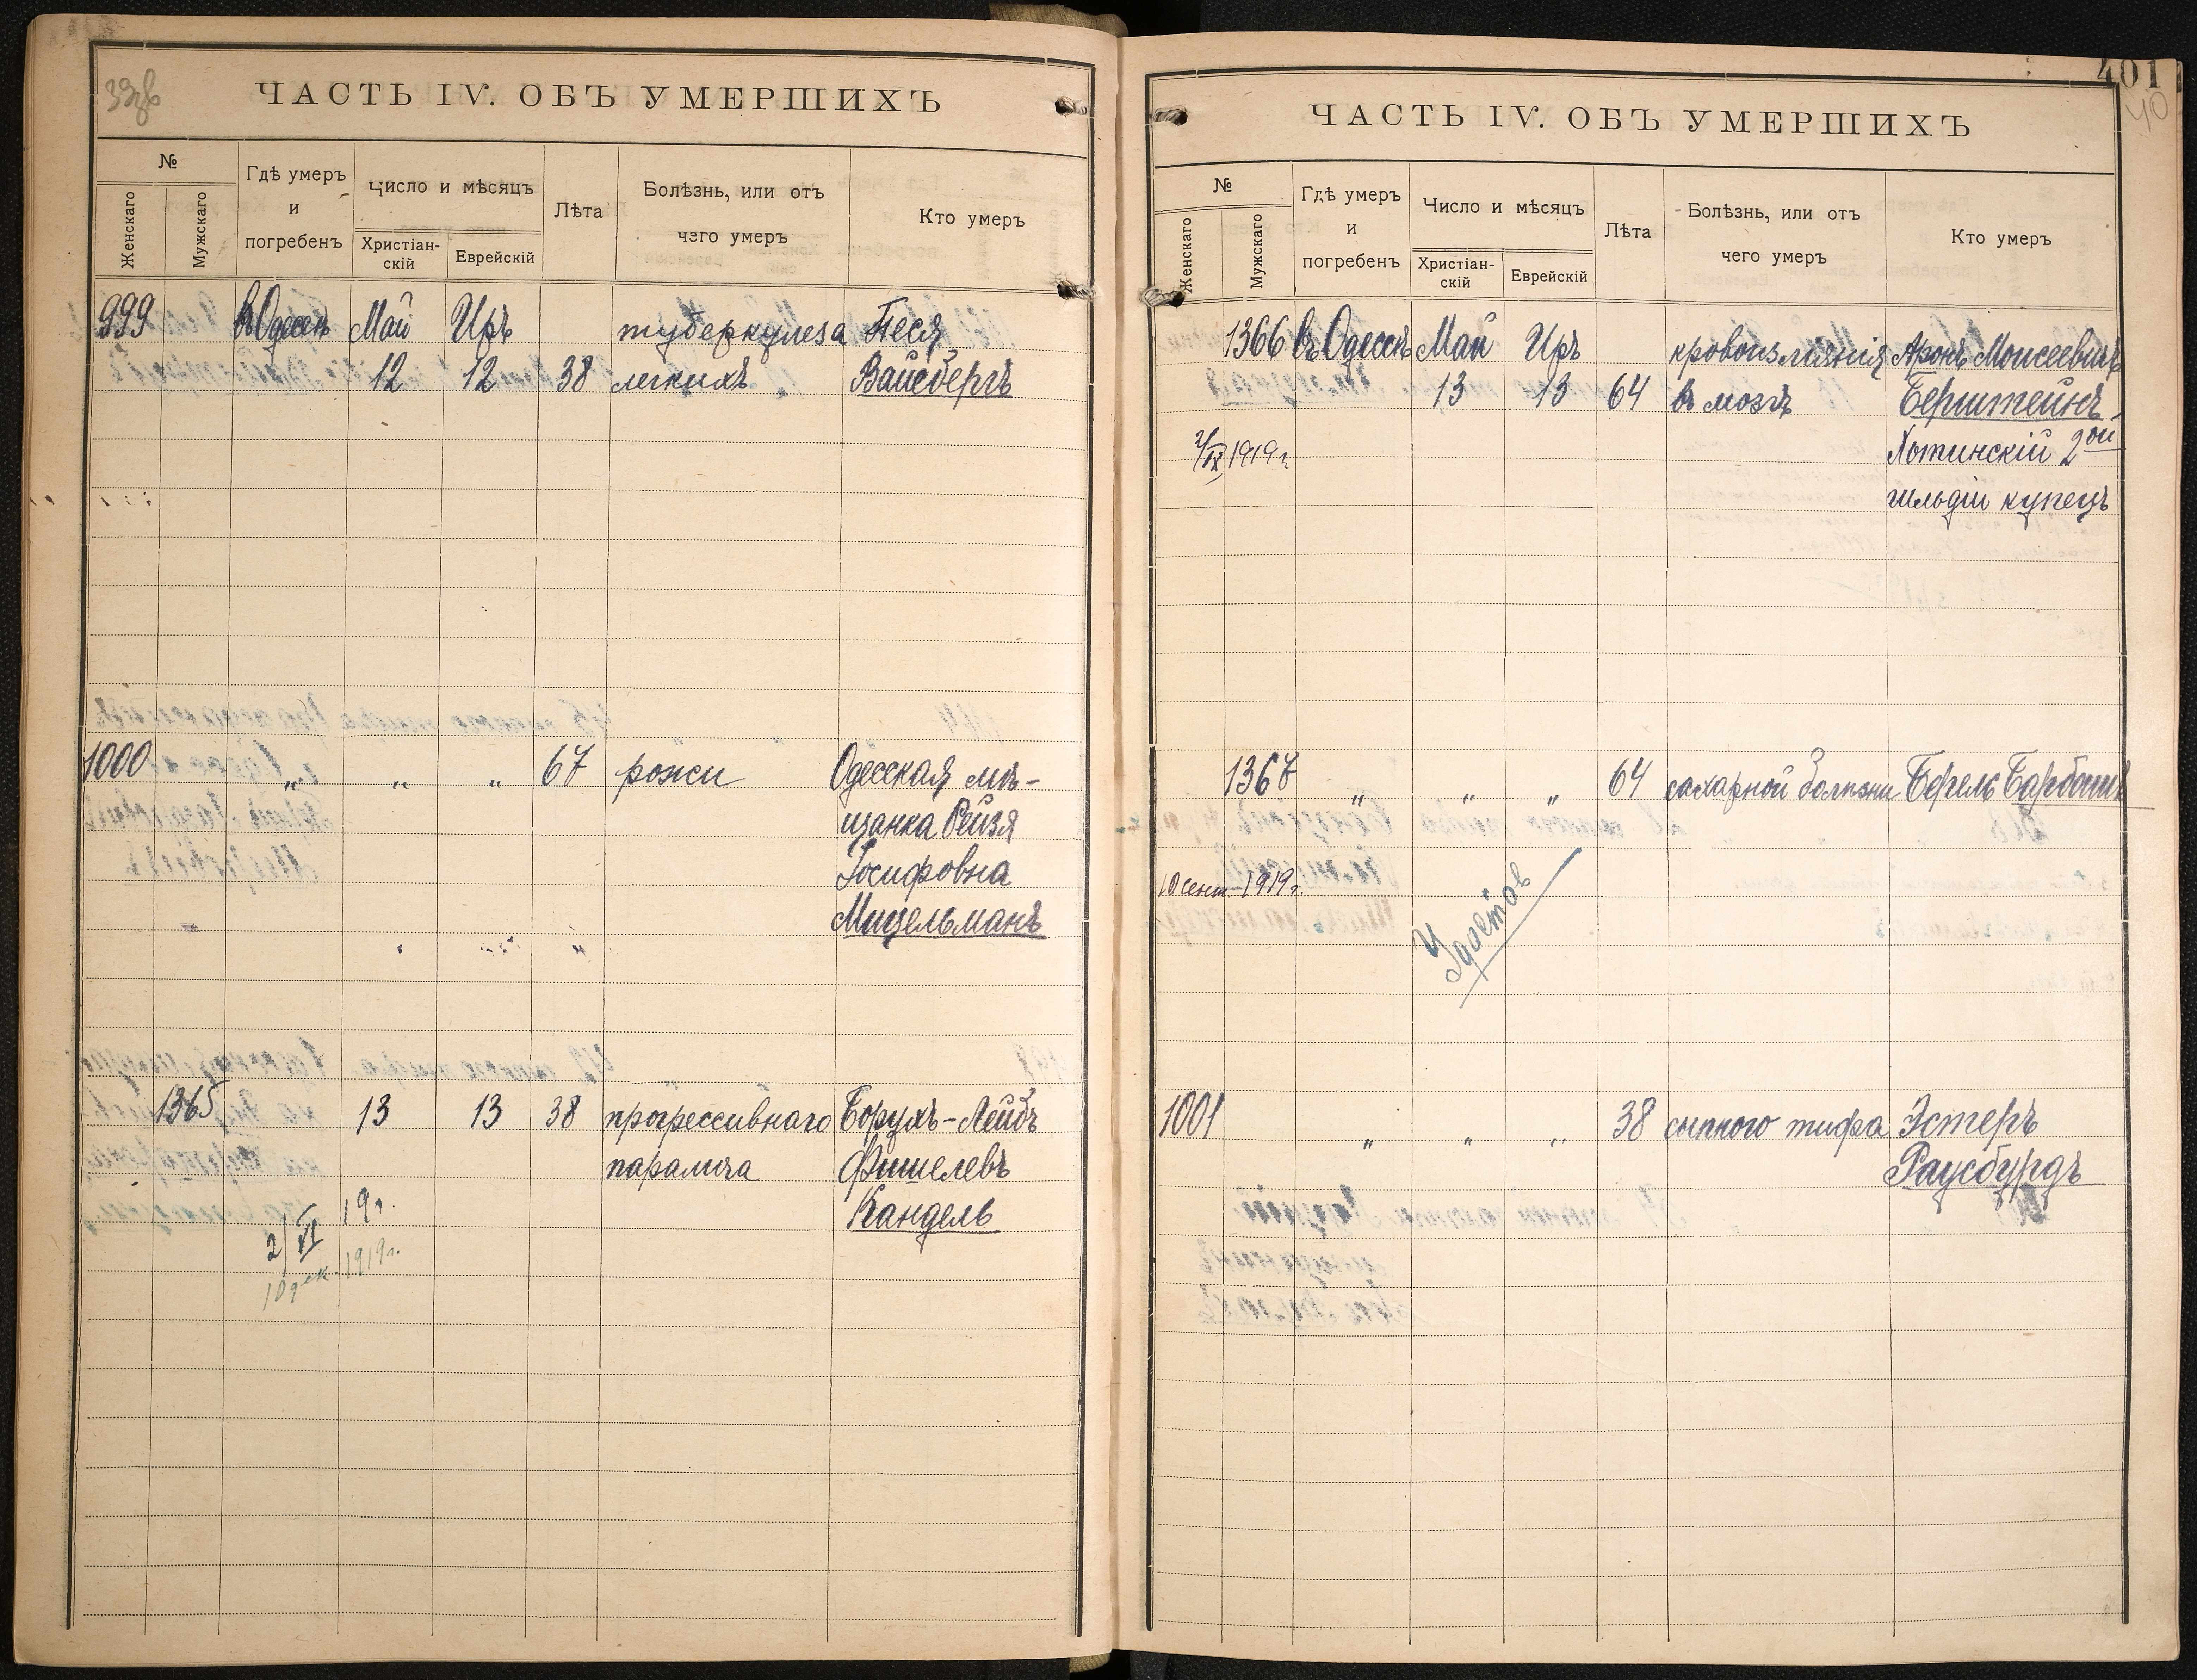 ЧАСТЬ IV. ОБЪ УМЕРШИХЪ
№
Женскаго
Мужскаго
Гдѣ умеръ
и
погребенъ
Число и мѣсяцъ
Христіан-
скій
Еврейскій
Лѣта
Болѣзнь, или отъ
чего умеръ
Кто умеръ
999 въ Одессѣ Май Иръ туберкулеза Песя
12 12 38 легкихъ Вайсбергъ
1000 „ „ „ 67 рожи Одесская мѣ-
щанка Рейзя
Іосифовна
Мицельманъ
1365 13 13 38 прогрессивнаго Борухъ-Лейбъ
паралича Фишелевъ
19г. Кандель
2/VI
10 дек. 1919г.
401
40
ЧАСТЬ IV. ОБЪ УМЕРШИХЪ
№
Женскаго
Мужскаго
Гдѣ умеръ
и
погребенъ
Число и мѣсяцъ
Христіан-
скій
Еврейскій
Лѣта
Болѣзнь, или отъ
чего умеръ
Кто умеръ
1366 въ Одессѣ Май Иръ кровоизліянія Аронъ Моисеевичъ
13 13 64 въ мозгъ Бернштейнъ,
2/IX 1919г. Хотинскій 2ой
гильдіи купецъ
1367 „ „ „ 64 сахарной болѣзни Берель Барбашъ
10 сент. 1919г.
1001 „ „ „ 38 сыпного тифа Эстеръ
Раусбурдъ